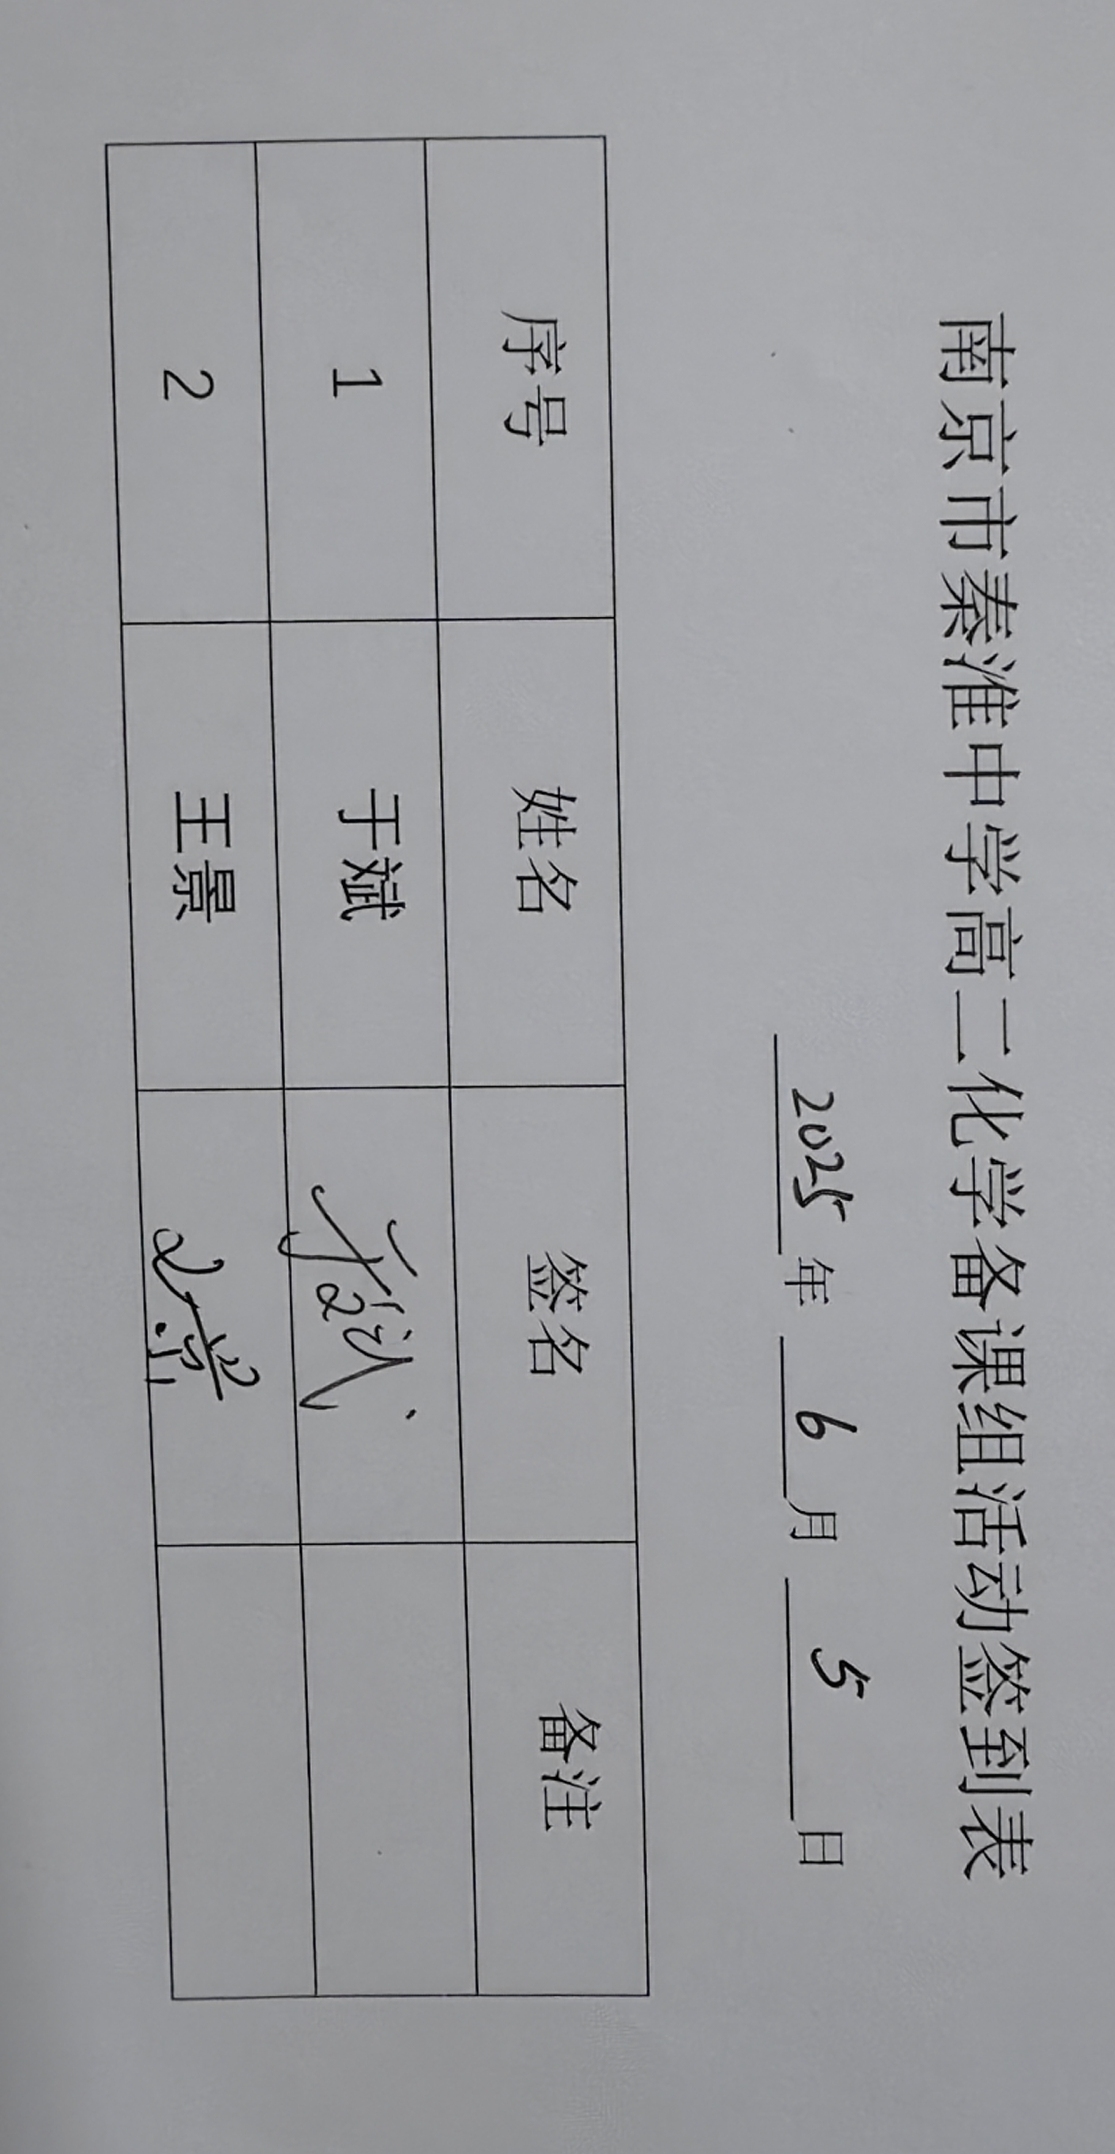 南京市秦淮中学高二化学备课组活动签到表
2025 年 6 月 5 日
序号 姓名 签名 备注
1 于斌 于斌
2 王景 王景